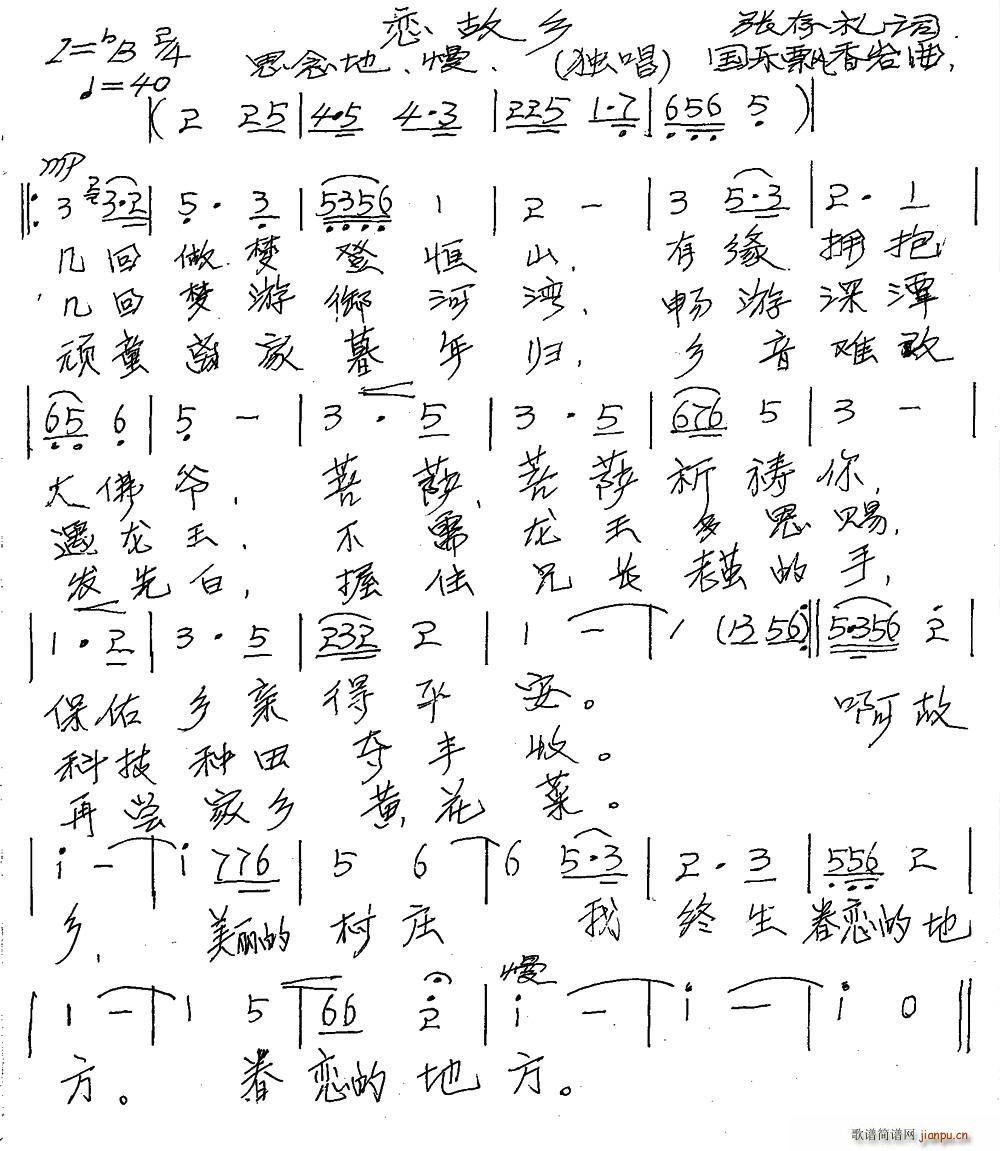 恋故乡
1=♭B 2/4
张存礼词
♩=40
思念地、慢、
(独唱)
国乐飘香岩曲,
( 2 25 | 4·5 4·3 | 225 1·7 | 656 5 )|
mp
3 3·2 | 5· 3 | 5356 1 | 2 - | 3 5·3 | 2· 1 |
几回做梦登恒山, 有缘拥抱
几回梦游御河湾, 畅游深潭
顽童离家暮年归, 乡音难改
| 65 6 | 5 - | 3· 5 | 3· 5 | 676 5 | 3 - |
大佛爷, 菩萨,菩萨祈祷你,
遇龙王, 不需龙王多恩赐,
发先白, 握住兄长老茧的手,
| 1· 2 | 3· 5 | 232 2 | 1 - | 1 (13 56) :|| 5·356 2 |
保佑乡亲得平安。 啊故
科技种田夺丰收。
再尝家乡黄花菜。
| i - | i 776 | 5 6 | 6 5·3 | 2· 3 | 556 2 |
乡, 美丽的村庄 我终生眷恋的地
慢
| 1 - | 1 5 | 66 2 | i - | i - | i 0 ||
方。 眷恋的地方。
歌谱简谱网
jianpu.cn